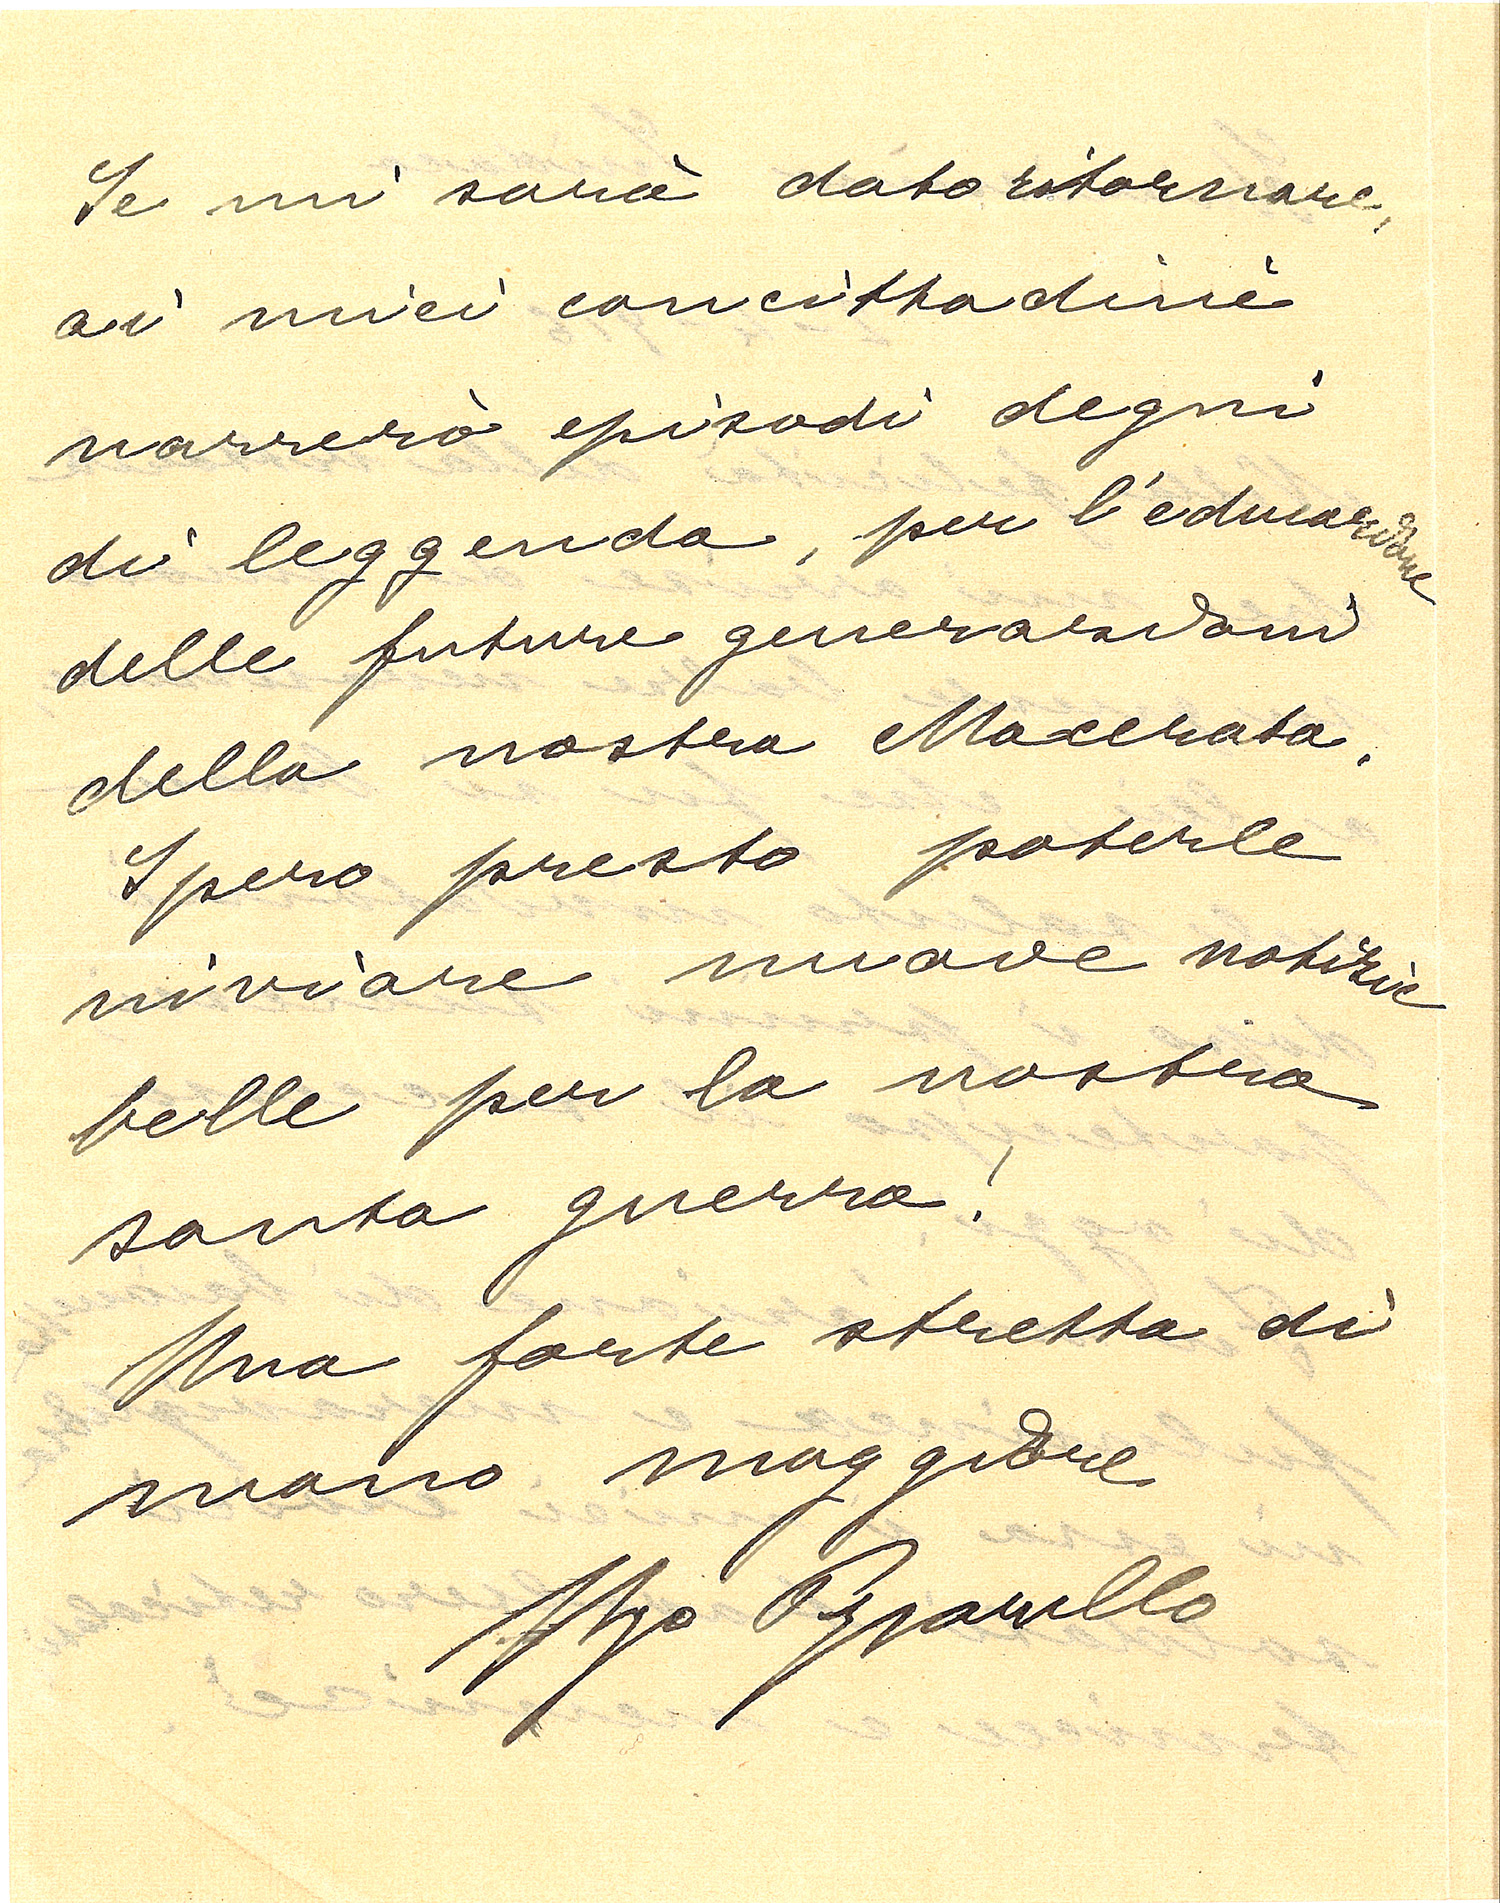 Se mi sarà dato ritornare,
ai miei concittadini
narrerò episodi degni
di leggenda, per l'educazione
delle future generazioni
della nostra Macerata.
Spero presto poterle
inviare nuove notizie
belle per la nostra
santa guerra!
Una forte stretta di
mano maggiore
Ugo